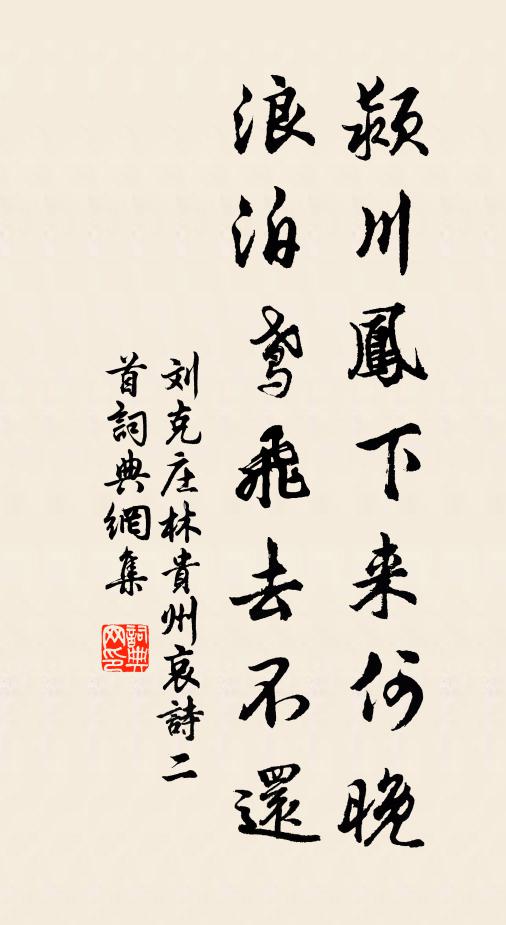 潁川鳳下来何晚
浪泊鳶飛去不還
刘克庄林貴州哀詩二
首詞典網集
詞典
网印